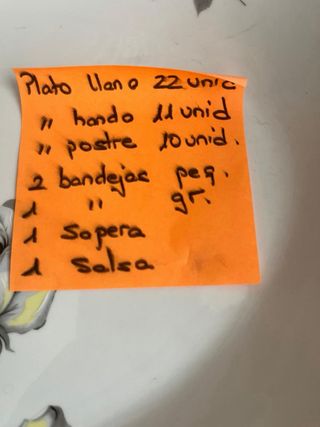 Plato llano 22 unid
" hondo 11 unid
" postre 10 unid.
2 bandejas peq.
1 " gr.
1 sopera
1 salsa